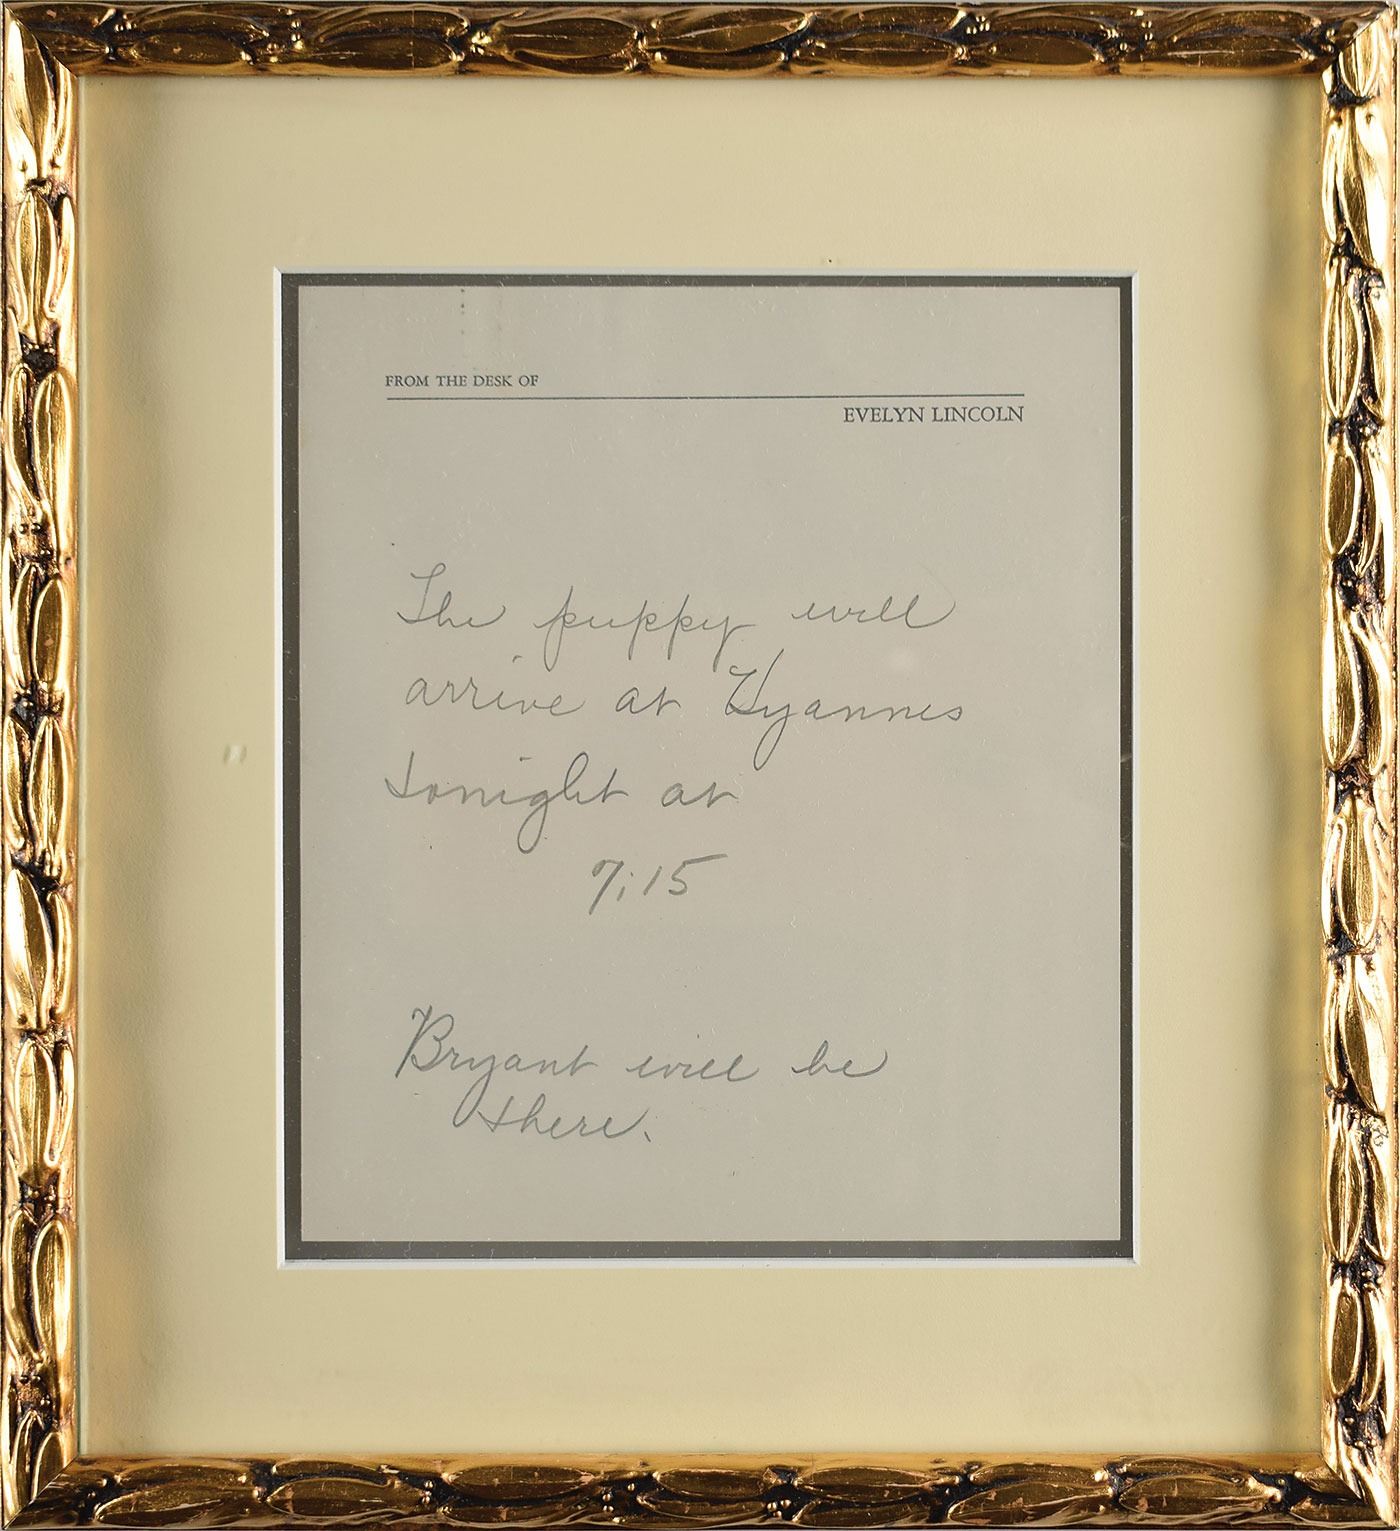 FROM THE DESK OF
EVELYN LINCOLN
The puppy will
arrive at Hyannis
tonight at
7:15
Bryant will be
there.